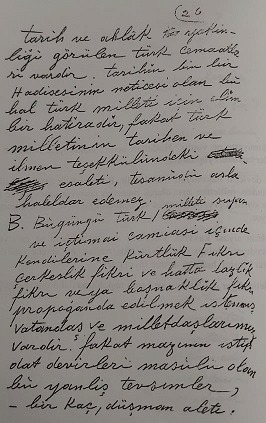 (26
tarih ve ahlâk
liği görülen türk cemaatle
ri vardır. tarihin bin bir
Hadisesinin neticesi olan bu
hal türk milleti için elîm
bir hatıradır, fakat türk
milletinin tarihen ve
ilmen teşekkülündeki
esaleti, tesanüdü asla
haleldar edemez.
B. Bugünkü türk milleti siyasi
ve içtimai camiası içinde
kendilerine kürtlük Fikri
çerkeslik fikri ve hatta lazlık
fikri veya boşnaklık fikri
propaganda edilmek istenmiş
vatandaş ve milletdaşlarımız
vardır. fakat mazinin istib
dat devirleri mahsulü olan
bu yanlış tevsimler,
- bir kaç, düşman aleti.